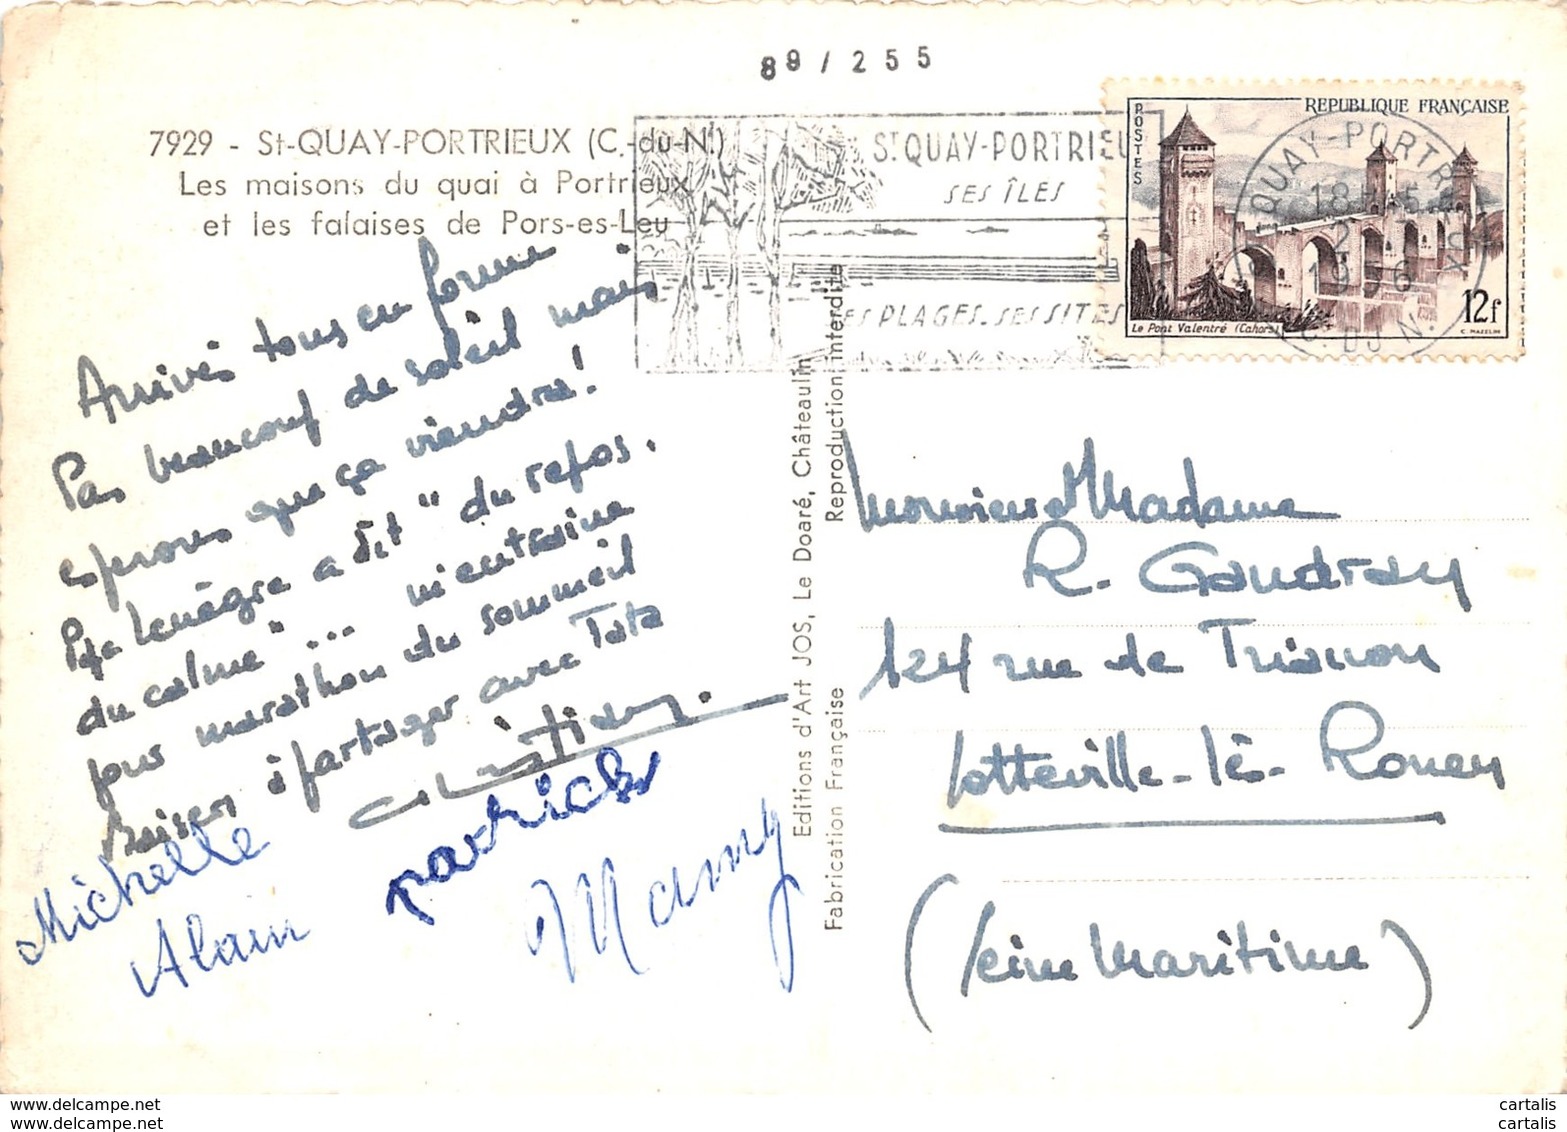 89 / 255
7929 - St-QUAY-PORTRIEUX (C.-du-N.)
Les maisons du quai à Portrieux
et les falaises de Pors-es-Leu
St QUAY-PORTRIEU
SES ÎLES
ES PLAGES. SES SITES
POSTES
REPUBLIQUE FRANÇAISE
12f
Le Pont Valentré (Cahors)
C. MAZELIN
QUAY-PORTRIEUX
18
1956
C. DU N.
Arrivés tous en forme
Pas beaucoup de soleil mais
espérons que ça viendra!
Lenègre a dit "du repos.
du calme" ... 
pour marathon du sommeil
à partager avec Tata
Christian.
Michelle
Alain
patrick
Mamy
Editions d'Art JOS, Le Doaré, Châteaulin
Fabrication Française
Reproduction interdite
Monsieur et Madame
R. Gaudray
124 rue de Trianon
Sotteville-lès-Rouen
(Seine Maritime)
www.delcampe.net
cartalis
cartalis